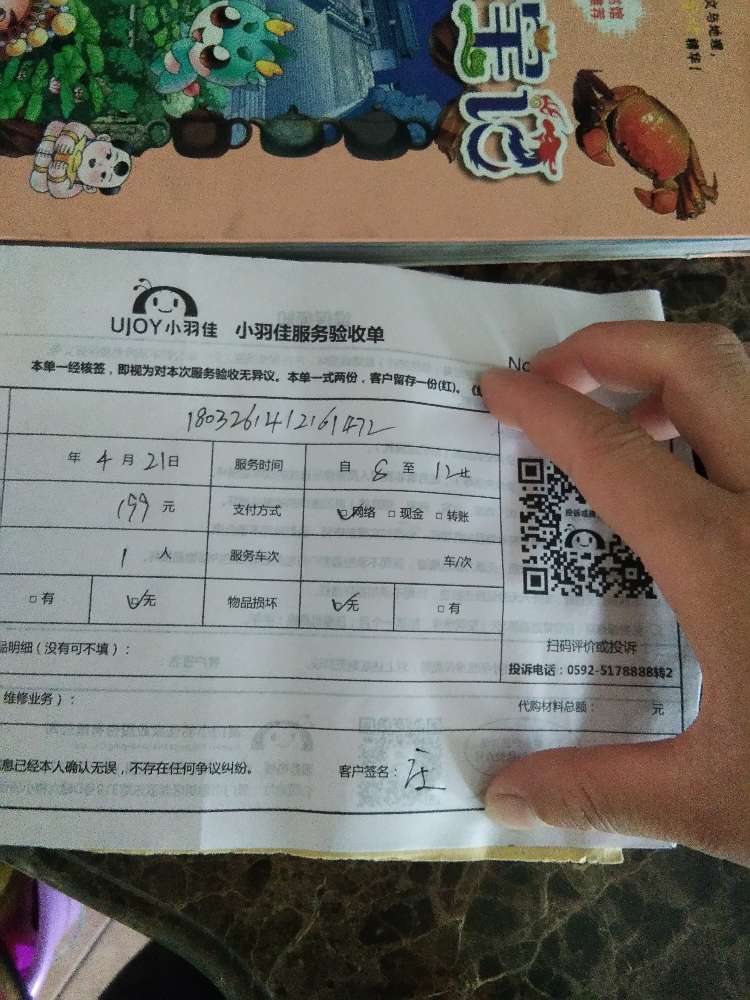 文与地理，
精华！
宝记
UJOY小羽佳 小羽佳服务验收单
No
本单一经核签，即视为对本次服务验收无异议。本单一式两份，客户留存一份(红)。
1803261412161472
年 4 月 21 日 服务时间 自 8 至 12止
199 元 支付方式 网络 □ 现金 □ 转账
1 人 服务车次 车/次
□ 有 无 物品损坏 无 □ 有
扫码评价或投诉
品明细（没有可不填）：
投诉电话：0592-5178888转2
维修业务）：
代购材料总额： 元
息已经本人确认无误，不存在任何争议纠纷。 客户签名：